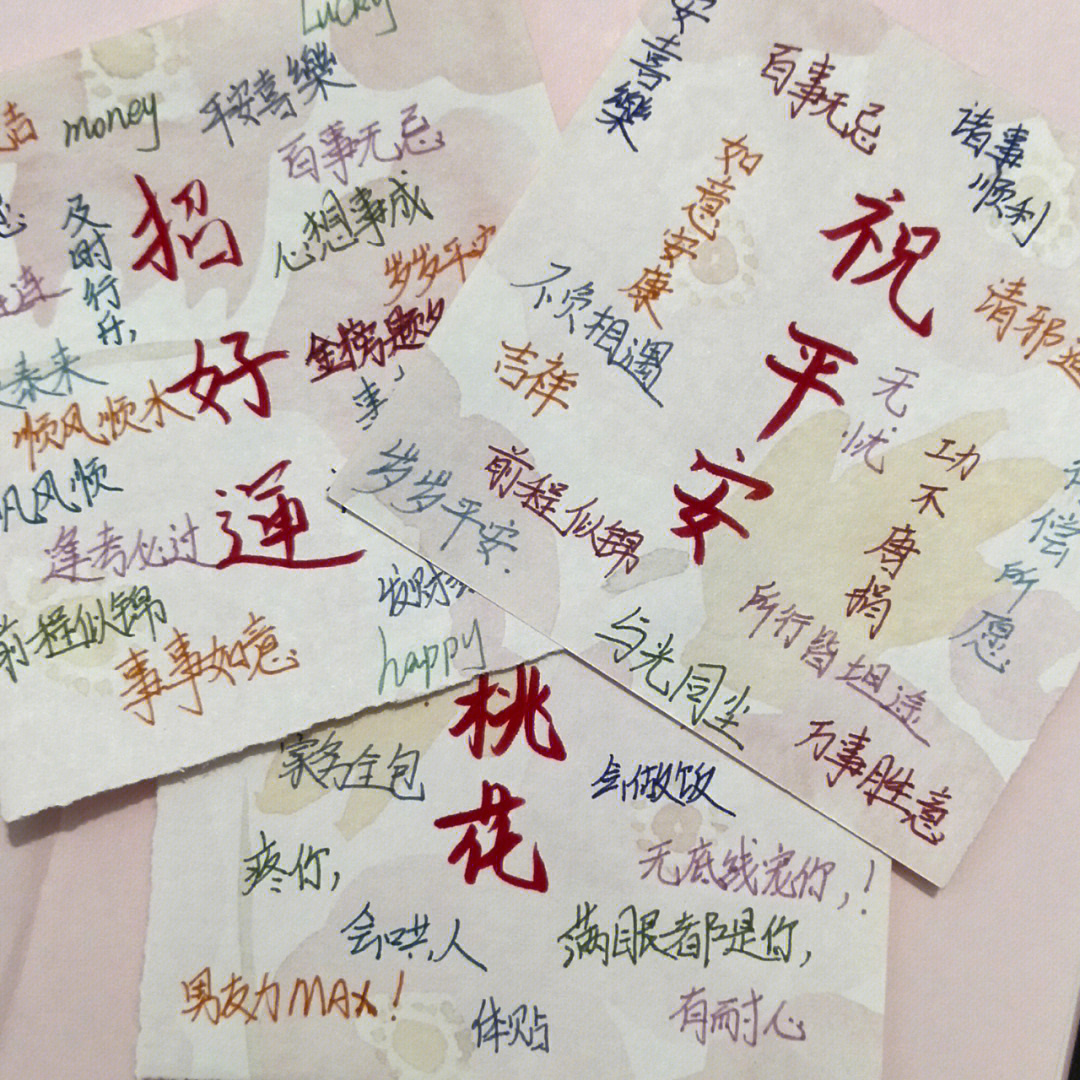 Lucky
吉
money
平安喜樂
百事无忌
及时行乐,
招
好
运
心想事成
岁岁平安
金榜题
泰来
顺风顺水
风风顺
逢考必过
前程似锦
事事如意
发财
happy
安喜樂
百事无忌
诸事顺利
如意安康
祝
平
安
不负相遇
请邪
吉祥
无忧
功不唐捐
得偿所愿
岁岁平安.
前程似锦
所行皆坦途
与光同尘
万事胜意
桃
花
家务全包
会做饭
疼你,
无底线宠你,!
会哄人
满眼都是你,
男友力MAX!
体贴
有耐心